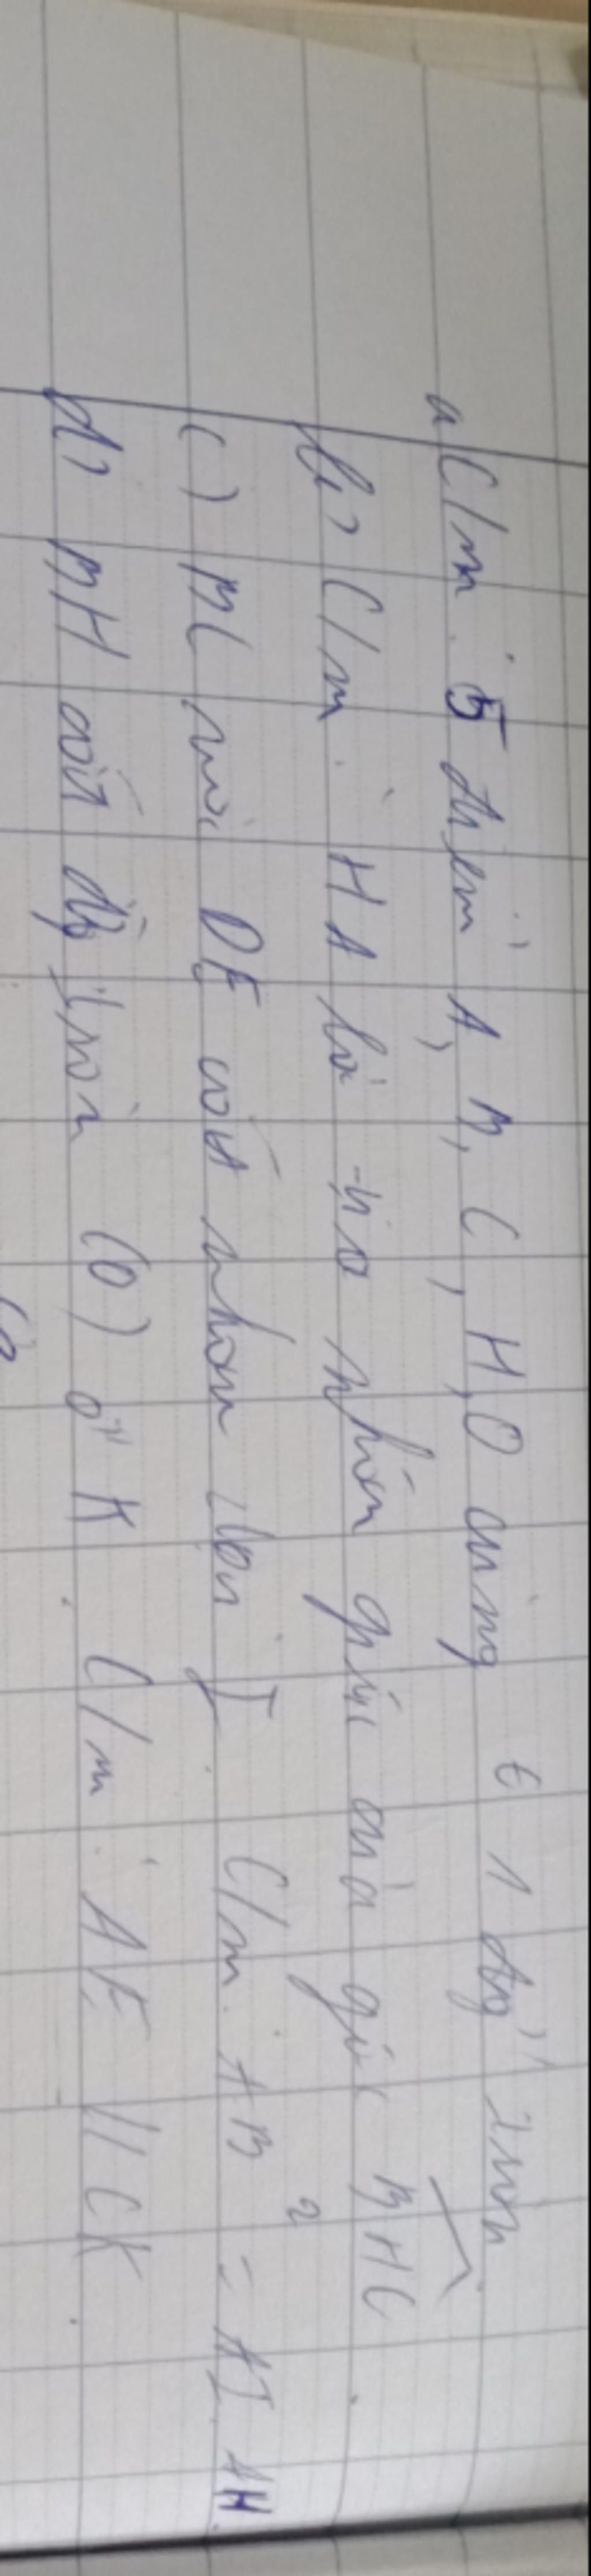 a C/m: 5 điểm A, B, C, H, O cùng ∈ 1 đg tròn
b) C/m: HA là tia phân giác của góc BHC.
c) BC và DE cắt nhau tại I. C/m: AB² = AI.AH
d) BH cắt đg tròn (O) ở K. C/m: AE // CK.